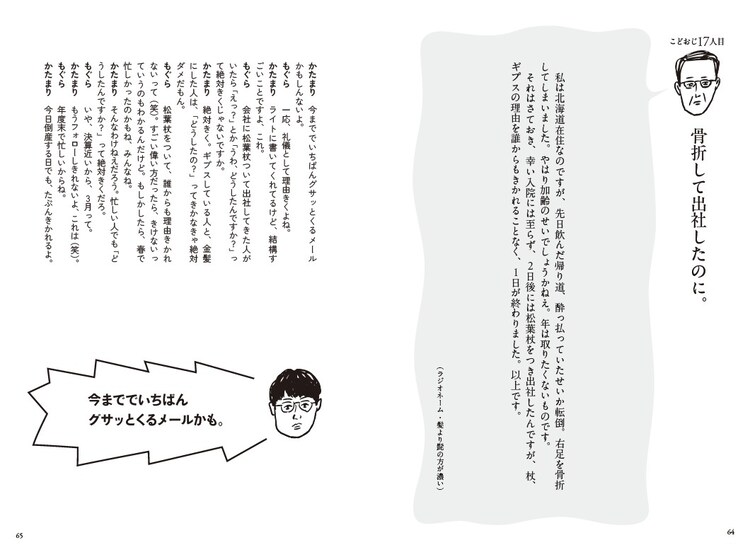 こどおじ17人目
骨折して出社したのに。
私は北海道在住なのですが、先日飲んだ帰り道、酔っ払っていたせいか転倒。右足を骨折
してしまいました。やはり加齢のせいでしょうかねえ。年は取りたくないものです。
それはさておき、幸い入院には至らず、2日後には松葉杖をつき出社したんですが、杖、
ギプスの理由を誰からもきかれることなく、1日が終わりました。以上です。
（ラジオネーム・髪より髭の方が濃い）
64
かたまり　今まででいちばんグサッとくるメール
かもしんないよ。
もぐら　一応、礼儀として理由きくよね。
かたまり　ライトに書いてくれてるけど、結構す
ごいことですよ、これ。
もぐら　会社に松葉杖ついて出社してきた人が
いたら「えっ？」とか「うわ、どうしたんですか？」っ
て絶対きくじゃないですか。
かたまり　絶対きく。ギプスしている人と、金髪
にした人は、「どうしたの？」ってきかなきゃ絶対
ダメだもん。
もぐら　松葉杖をついて、誰からも理由きかれ
ないって（笑）。すごい偉い方だったら、きけないっ
ていうのもわかるんだけど。もしかしたら、春で
忙しかったのかもね、みんなね。
かたまり　そんなわけねえだろう。忙しい人でも「ど
うしたんですか？」って絶対きくだろ。
もぐら　いや、決算近いから、3月って。
かたまり　もうフォローしきれないよ、これは（笑）。
もぐら　年度末で忙しいからね。
かたまり　今日倒産する日でも、たぶんきかれるよ。
今まででいちばん
グサッとくるメールかも。
65